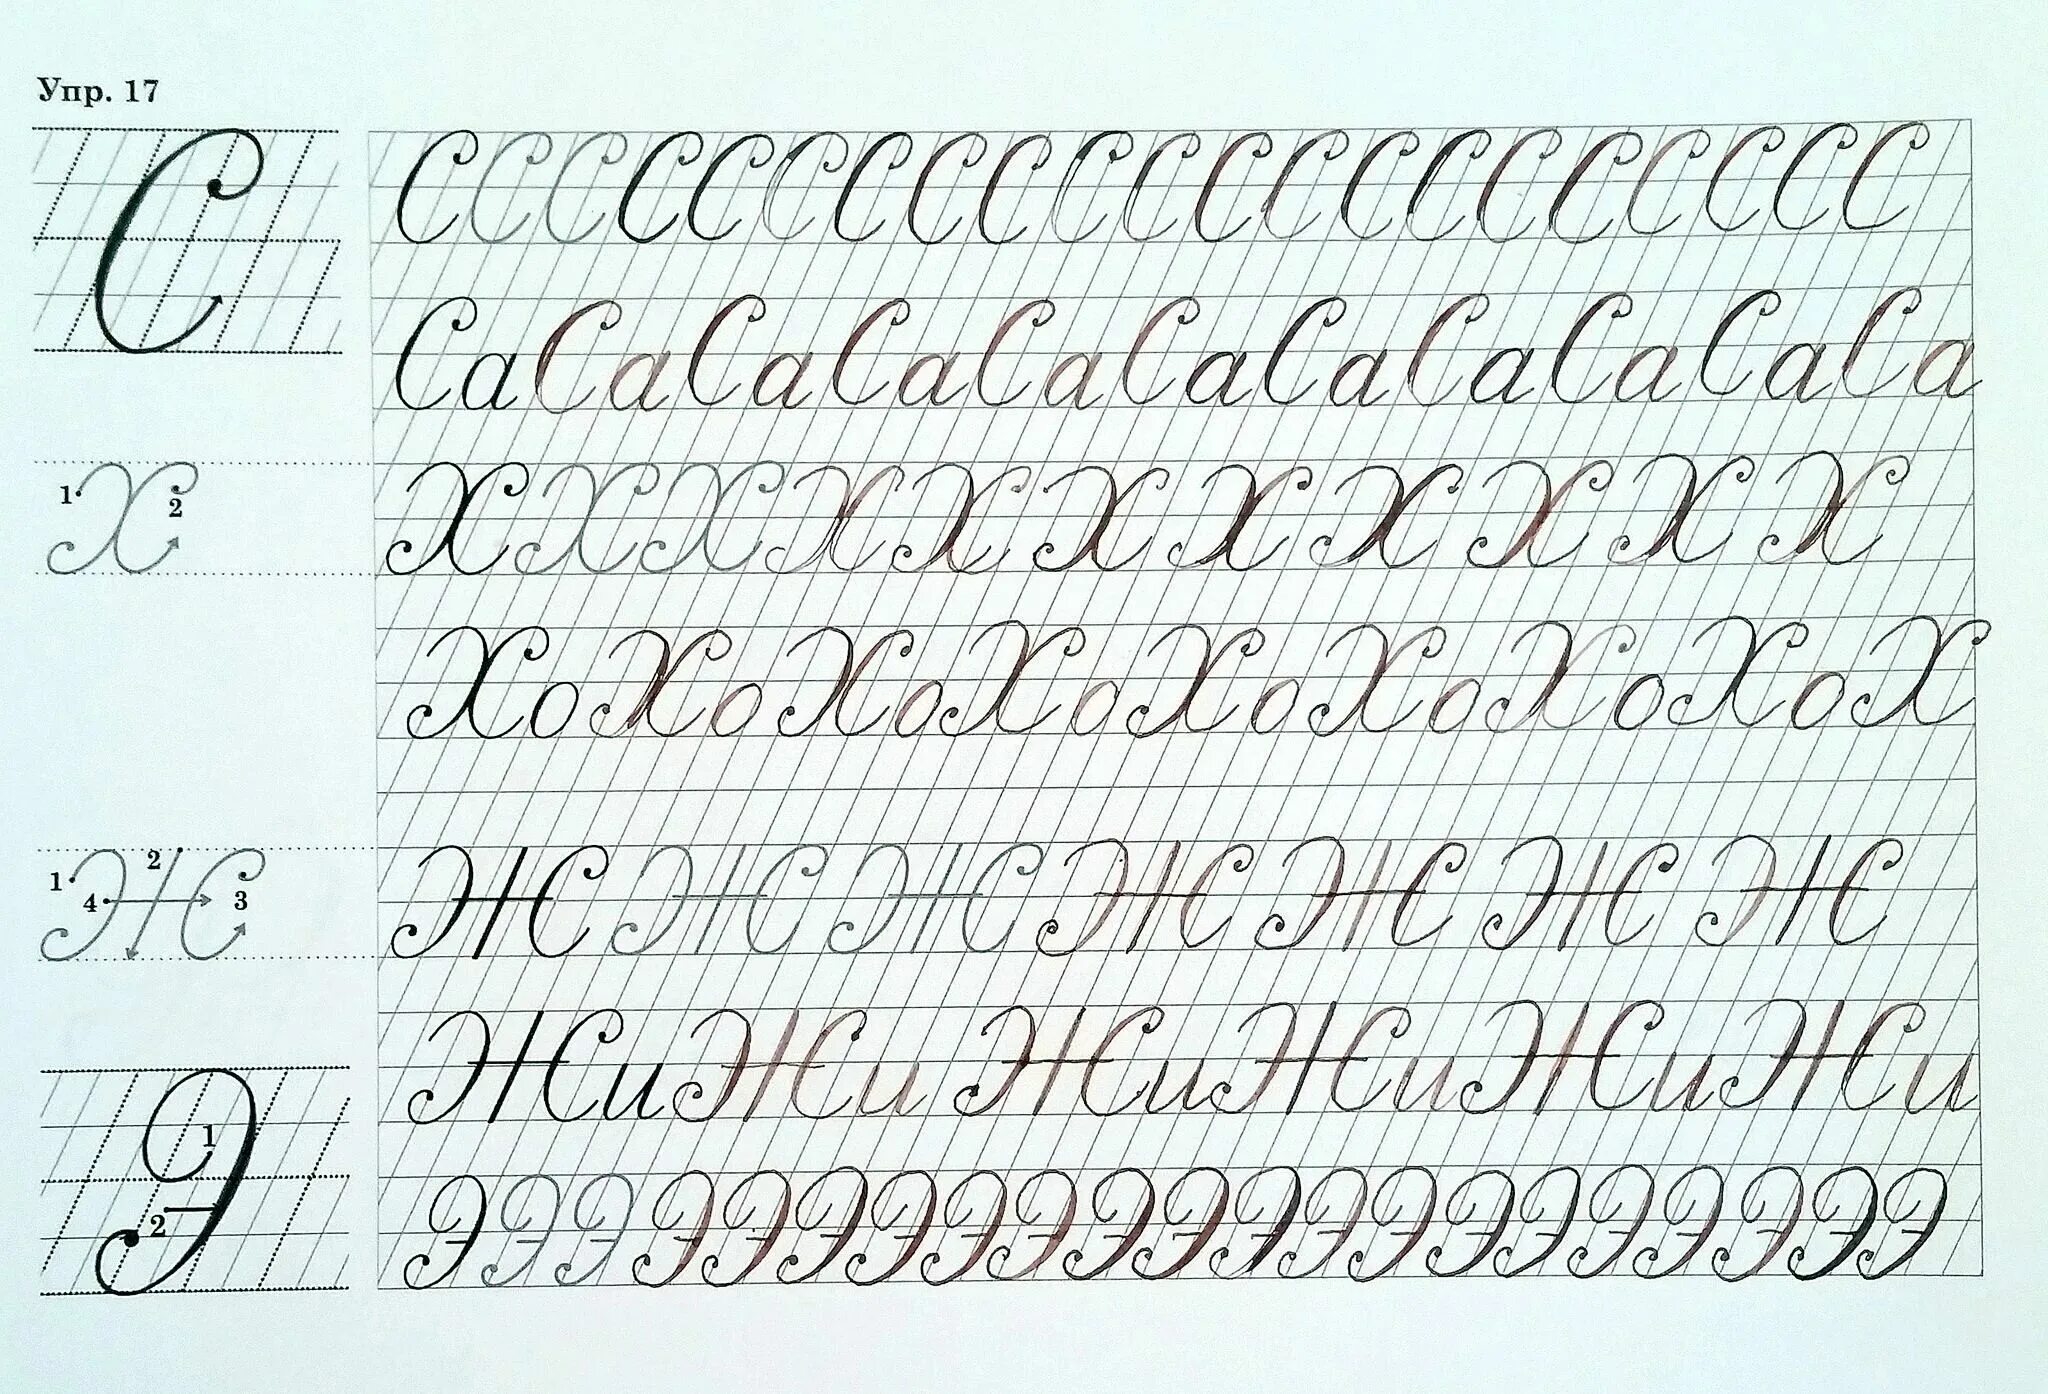 Упр. 17
С
С С С С С С С С С С С С С С С С С С С С С
Са Са Са Са Са Са Са Са Са Са Са
1 Х 2
Х Х Х Х Х Х Х Х Х Х Х
Хо Хо Хо Хо Хо Хо Хо Хо Х
1 2 4 Ж 3
Ж Ж Ж Ж Ж Ж Ж
Жи Жи Жи Жи Жи Жи
Э 1 2
Э Э Э Э Э Э Э Э Э Э Э Э Э Э Э Э Э Э Э Э Э